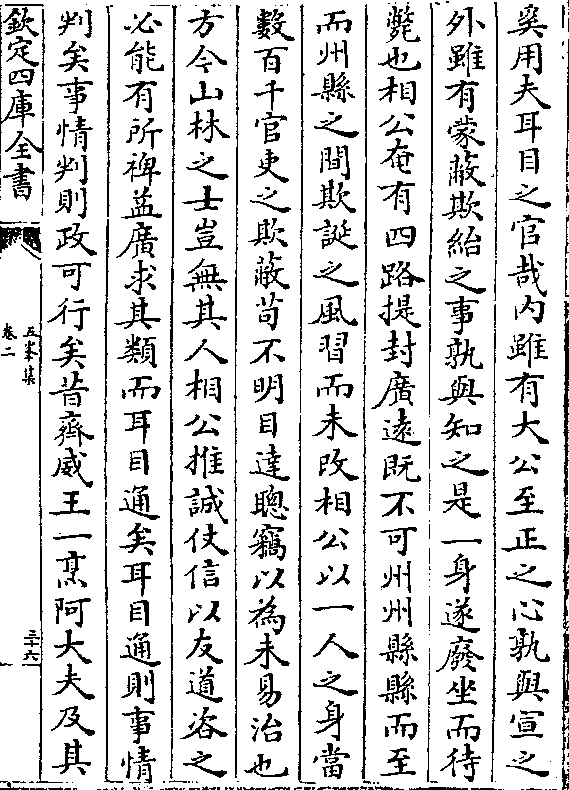 奚用夫耳目之官哉内雖有大公至正之心孰與宣之
外雖有蒙蔽欺紿之事孰與知之是一身遂廢坐而待
斃也相公奄有四路提封廣逺既不可州州縣縣而至
而州縣之間欺誕之風習而未改相公以一人之身當
數百千官吏之欺蔽茍不明目達聰竊以為未易治也
方今山林之士豈無其人相公推誠仗信以友道咨之
必能有所裨益廣求其類而耳目通矣耳目通則事情
判矣事情判則政可行矣昔齊威王一烹阿大夫及其
欽定四庫全書
五峯集
卷二
三十六